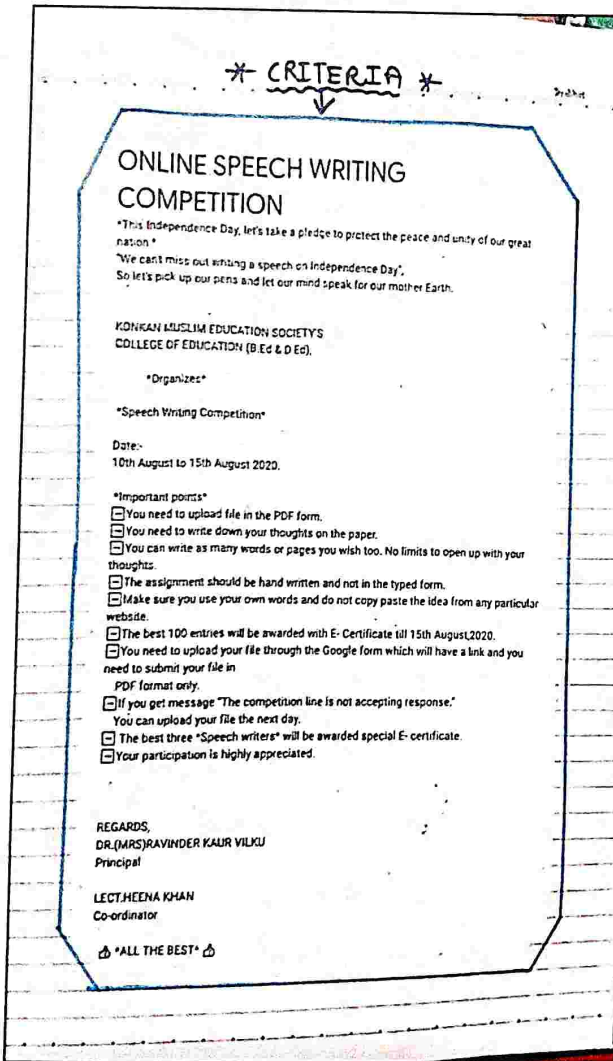 * CRITERIA *
ONLINE SPEECH WRITING
COMPETITION
*This Independence Day, let's take a pledge to protect the peace and unity of our great
nation *
"We cant miss out writing a speech on Independence Day",
So let's pick up our pens and let our mind speak for our mother Earth.
KONKAN MUSLIM EDUCATION SOCIETY'S
COLLEGE OF EDUCATION (B.Ed & D Ed),
*Organizes*
*Speech Writing Competition*
Date:-
10th August to 15th August 2020.
*Important points*
You need to upload file in the PDF form.
You need to write down your thoughts on the paper.
You can write as many words or pages you wish too. No limits to open up with your
thoughts.
The assignment should be hand written and not in the typed form.
Make sure you use your own words and do not copy paste the idea from any particular
website.
The best 100 entries will be awarded with E- Certificate till 15th August,2020.
You need to upload your file through the Google form which will have a link and you
need to submit your file in
PDF format only.
If you get message "The competition line is not accepting response."
You can upload your file the next day.
The best three *Speech writers* will be awarded special E- certificate.
Your participation is highly appreciated.
REGARDS,
DR.(MRS)RAVINDER KAUR VILKU
Principal
LECT.HEENA KHAN
Co-ordinator
*ALL THE BEST*